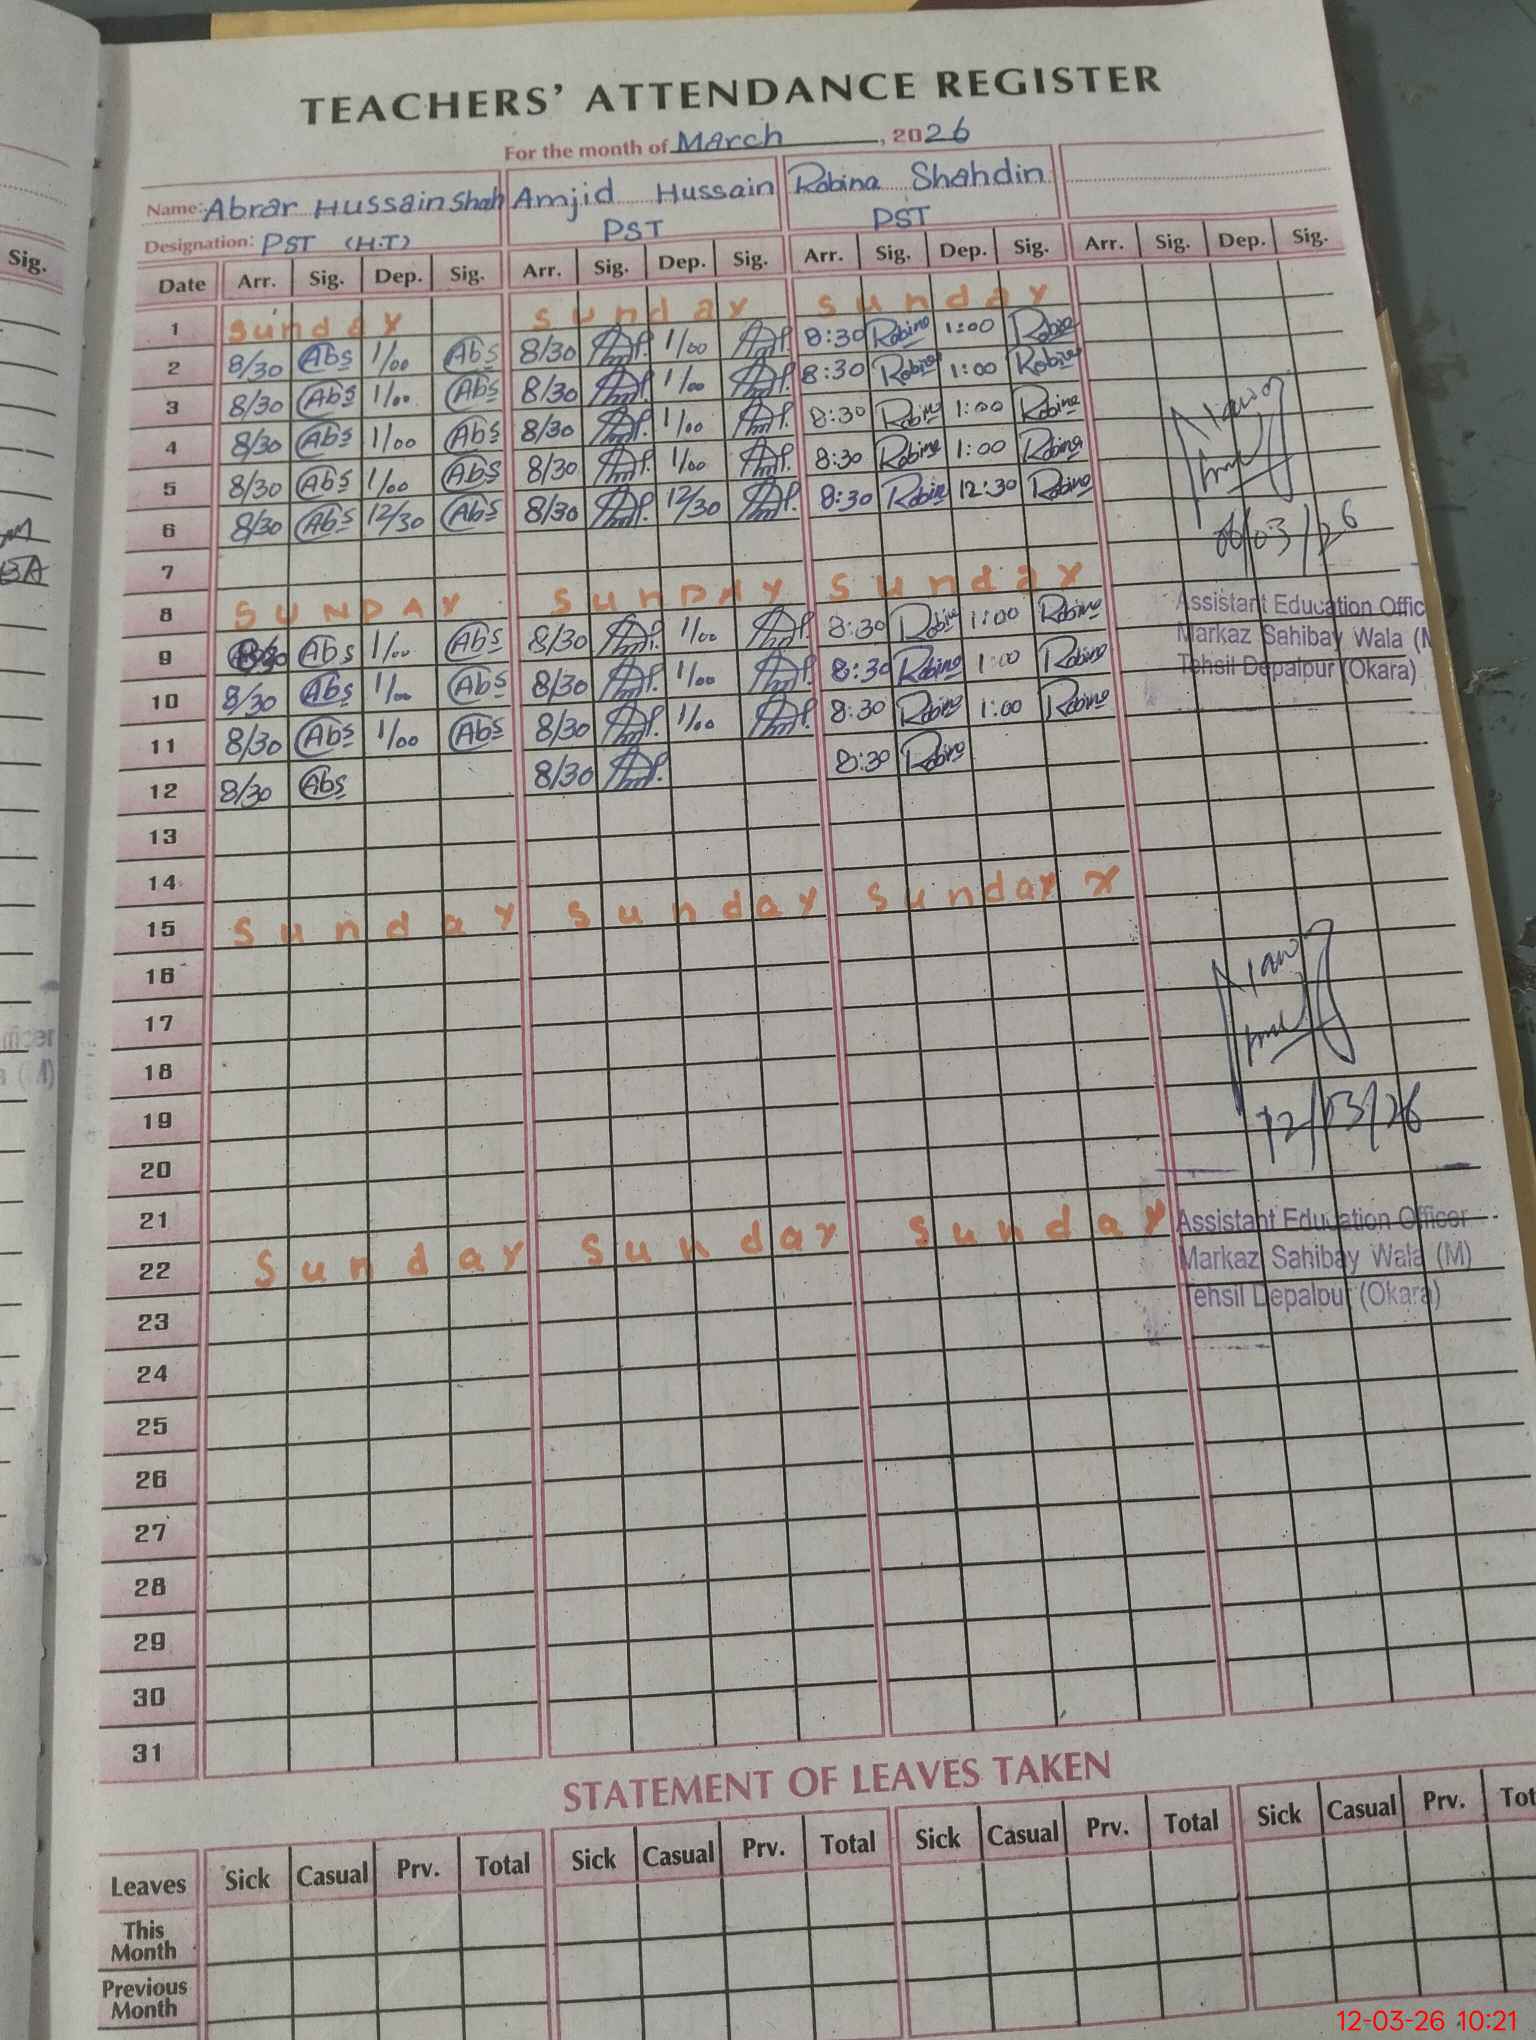 TEACHERS' ATTENDANCE REGISTER
For the month of March, 2026
Name: Abrar Hussain Shah Amjid Hussain Robina Shahdin
Designation: PST (H.T) PST PST
Sig.
Date Arr. Sig. Dep. Sig. Arr. Sig. Dep. Sig. Arr. Sig. Dep. Sig. Arr. Sig. Dep. Sig.
1 Sunday Sunday Sunday
2 8/30 Abs 1/00 Abs 8/30 1/00 8:30 Robina 1:00 Robina
3 8/30 Abs 1/00 Abs 8/30 1/00 8:30 Robina 1:00 Robina
4 8/30 Abs 1/00 Abs 8/30 1/00 8:30 Robina 1:00 Robina
5 8/30 Abs 1/00 Abs 8/30 1/00 8:30 Robina 1:00 Robina
6 8/30 Abs 12/30 Abs 8/30 12/30 8:30 Robina 12:30 Robina
06/03/26
7
8 SUNDAY SUNDAY Sunday
Assistant Education Offic
Markaz Sahibay Wala (M
Tehsil Depalpur (Okara)
9 8/30 Abs 1/00 Abs 8/30 1/00 8:30 Robina 1:00 Robina
10 8/30 Abs 1/00 Abs 8/30 1/00 8:30 Robina 1:00 Robina
11 8/30 Abs 1/00 Abs 8/30 1/00 8:30 Robina 1:00 Robina
12 8/30 Abs 8/30 8:30 Robina
13
14
15 Sunday Sunday Sunday x
16
17
18
19
12/03/26
20
21
22 Sunday Sunday Sunday
Assistant Education Officer
Markaz Sahibay Wala (M)
Tehsil Depalpur (Okara)
23
24
25
26
27
28
29
30
31
STATEMENT OF LEAVES TAKEN
Leaves Sick Casual Prv. Total Sick Casual Prv. Total Sick Casual Prv. Total Sick Casual Prv. Tot
This Month
Previous Month
12-03-26 10:21